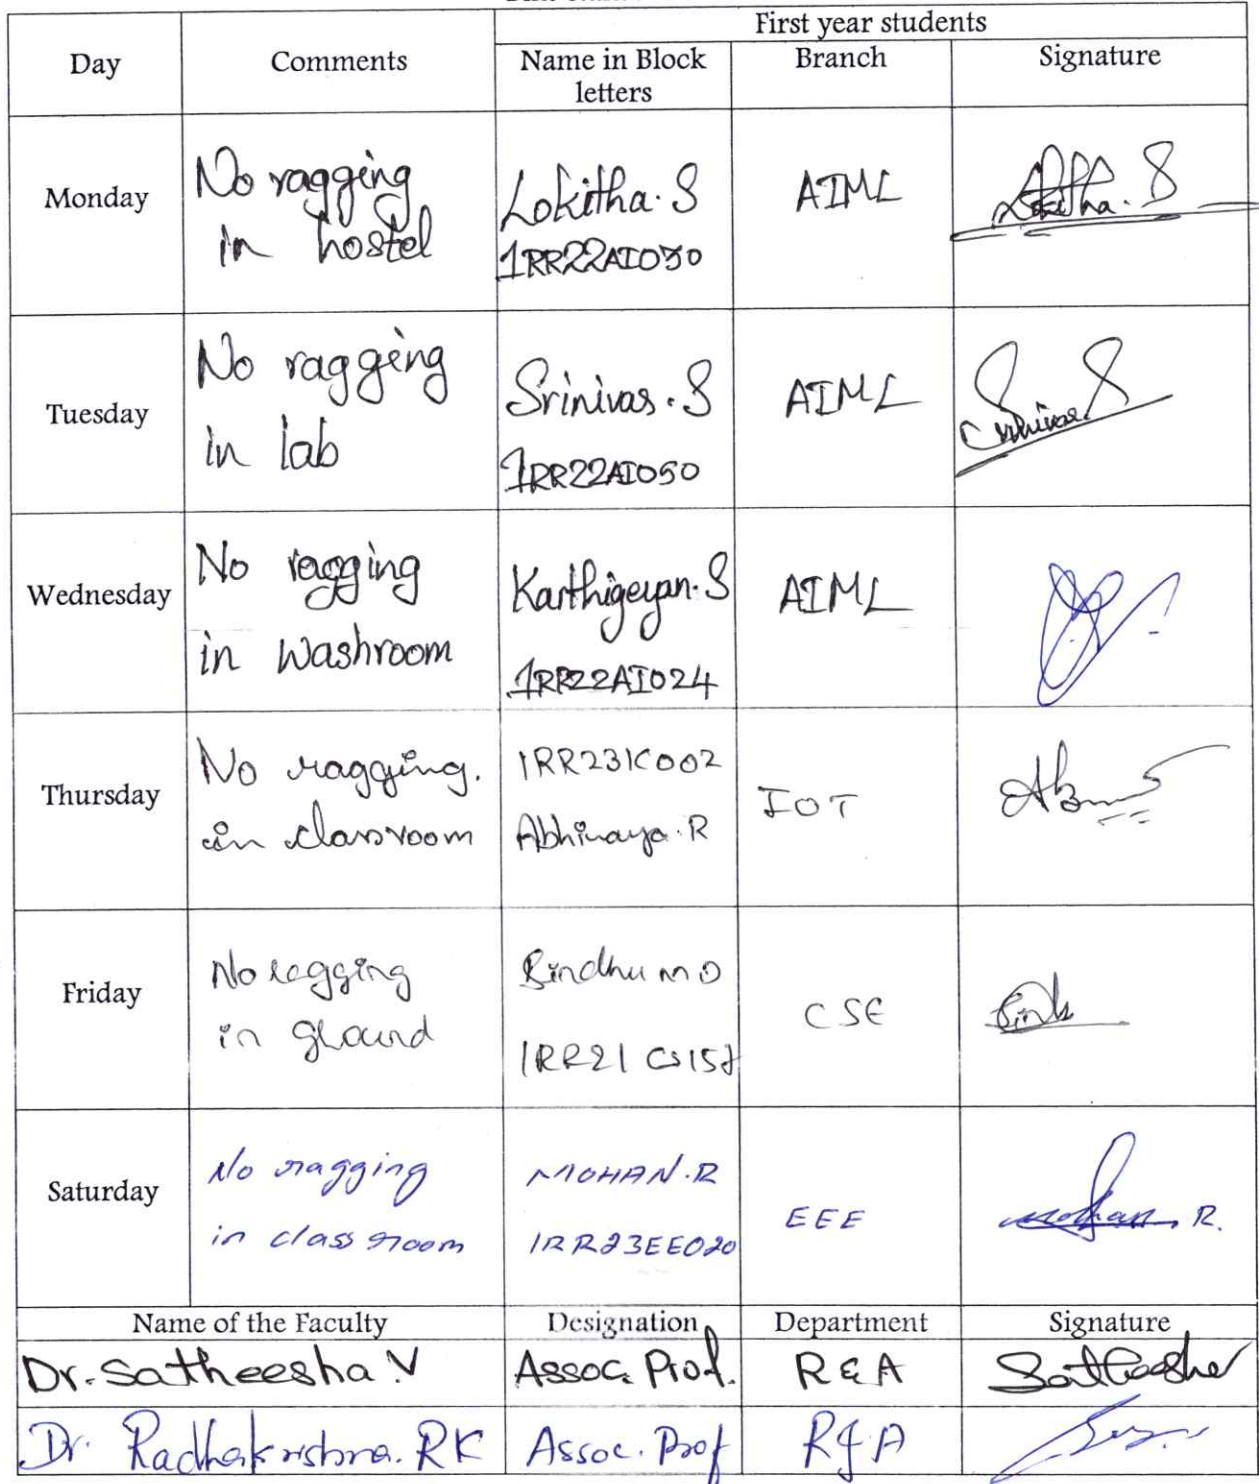 First year students
Day
Comments
Name in Block
letters
Branch
Signature
Monday
No ragging
in hostel
Lokitha. S
1RR22AI030
AIML
Lokitha. S
Tuesday
No ragging
in lab
Srinivas. S
1RR22AI050
AIML
Srinivas. S
Wednesday
No ragging
in washroom
Karthigeyan. S
1RR22AI024
AIML
Thursday
No ragging.
in classroom
1RR23IC002
Abhinaya. R
IOT
Friday
No ragging
in ground
Bindhu M D
1RR21 CS157
CSE
Saturday
No ragging
in class room
MOHAN. R
1RR23EE020
EEE
Mohan R.
Name of the Faculty
Designation
Department
Signature
Dr. Satheesha V
Assoc. Prof.
R & A
Satheesha
Dr. Radhakrishna. RK
Assoc. Prof
R & A